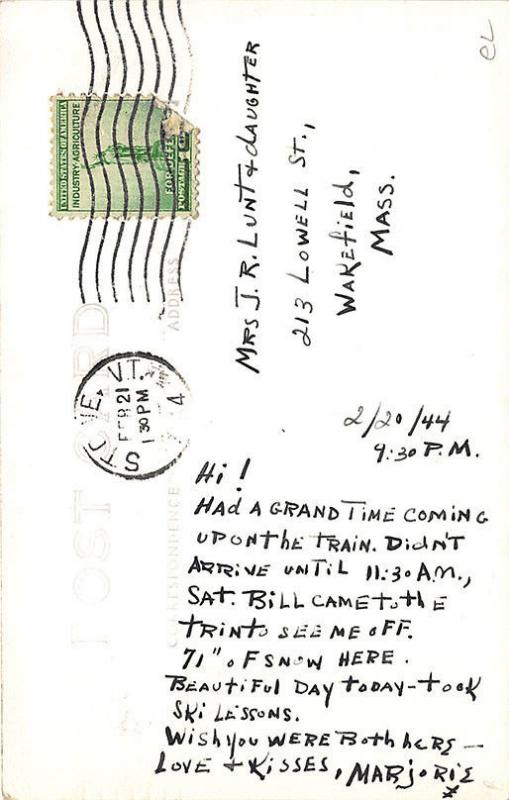 eL
UNITED STATES OF AMERICA
INDUSTRY·AGRICULTURE
FOR DEFE
POSTAGE 1
STOWE, VT.
FEB 21
1 30 PM
4
POST CARD
CORRESPONDENCE
ADDRESS
MRS J. R. LUNT & dAUGHTER
213 LOWELL ST.,
WAKEfiELd,
MASS.
2/20/44
9:30 P.M.
Hi!
HAd A GRANd TIME COMING
UP ON thE TRAIN. DidN'T
ARRIVE UNTIL 11:30 A.M.,
SAT. BILL CAME to thE
TRIN to SEE ME OFF.
71" OF SNOW HERE.
BEAUTIFUL DAY TODAY - took
SKI LESSONS.
WISh you WERE Both hERE —
LOVE & KISSES, MARJORIE
x